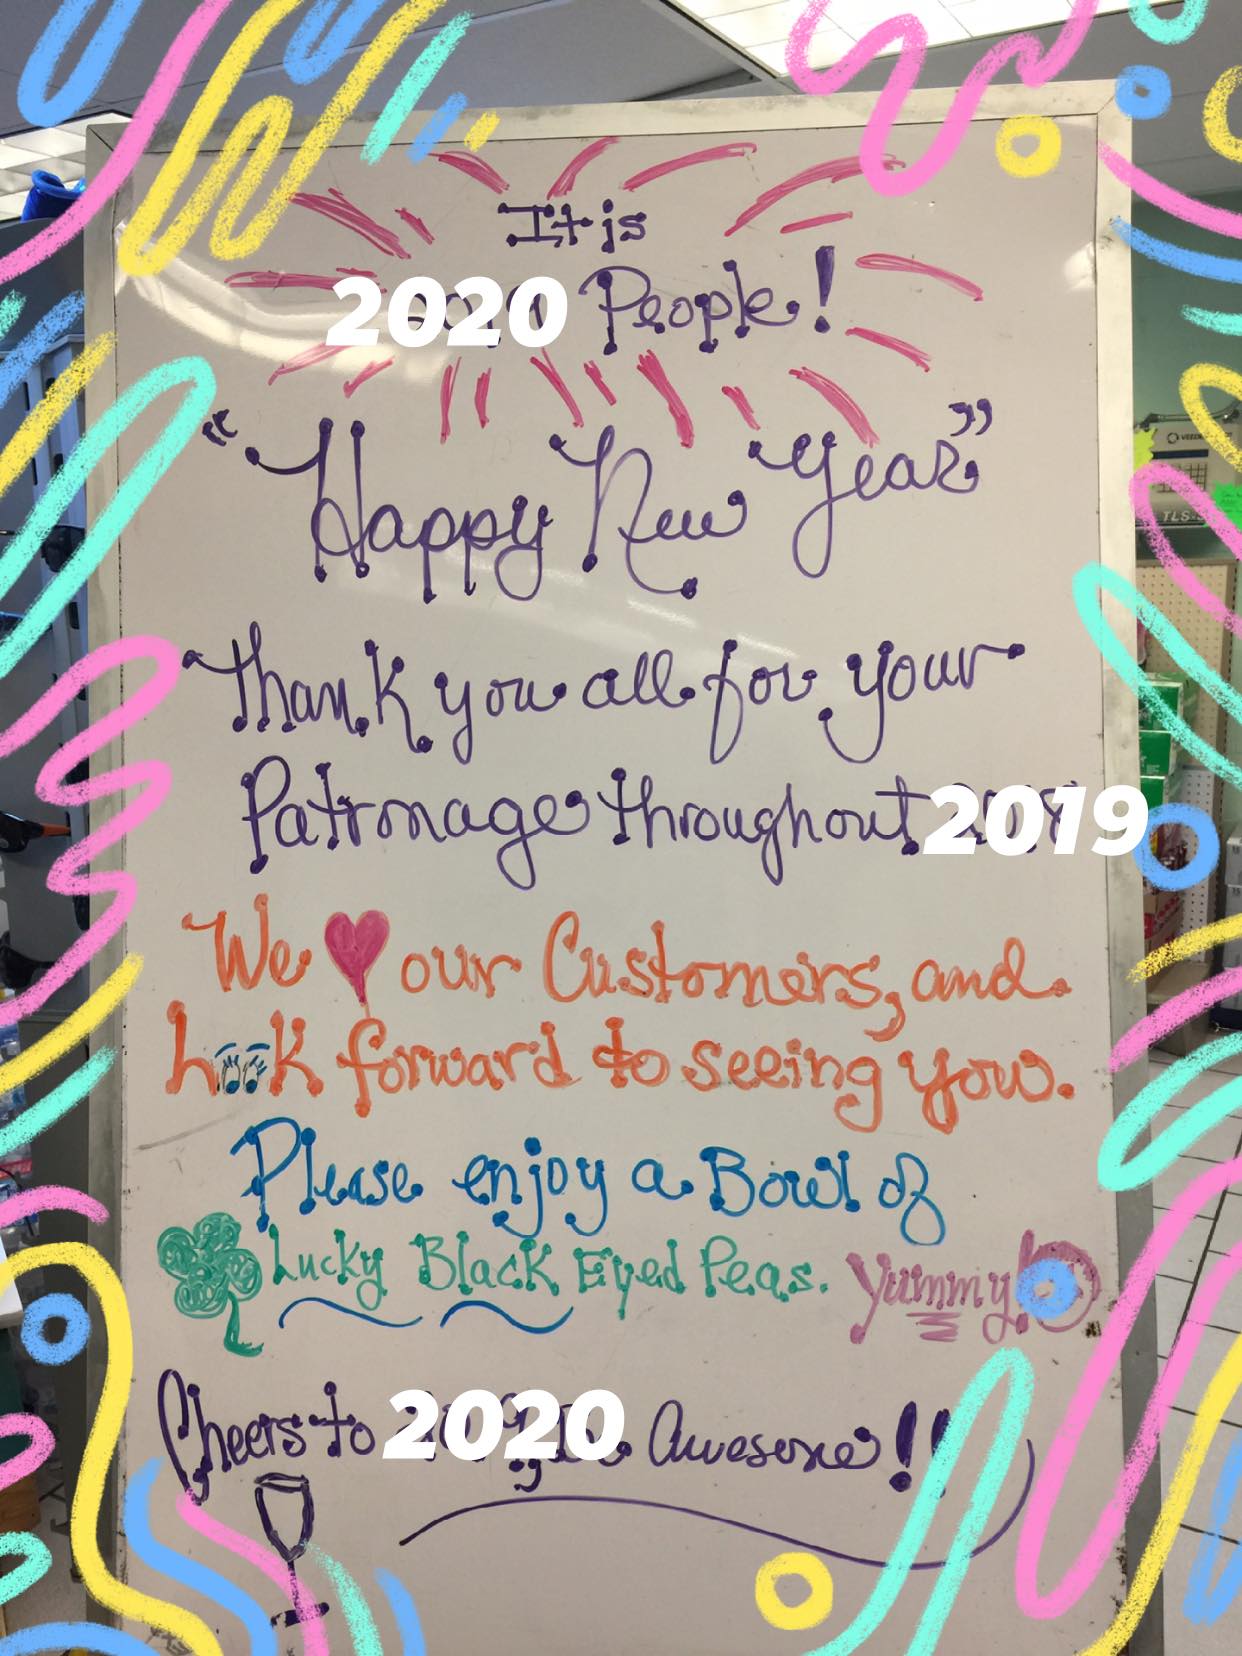 It is
2020 People!
"Happy New Year"
Thank you all for your
Patronage throughout 2019
We ♥ our Customers, and
look forward to seeing you.
Please enjoy a Bowl of
Lucky Black Eyed Peas. Yummy!
Cheers to 2020 Awesome!!
TLS-